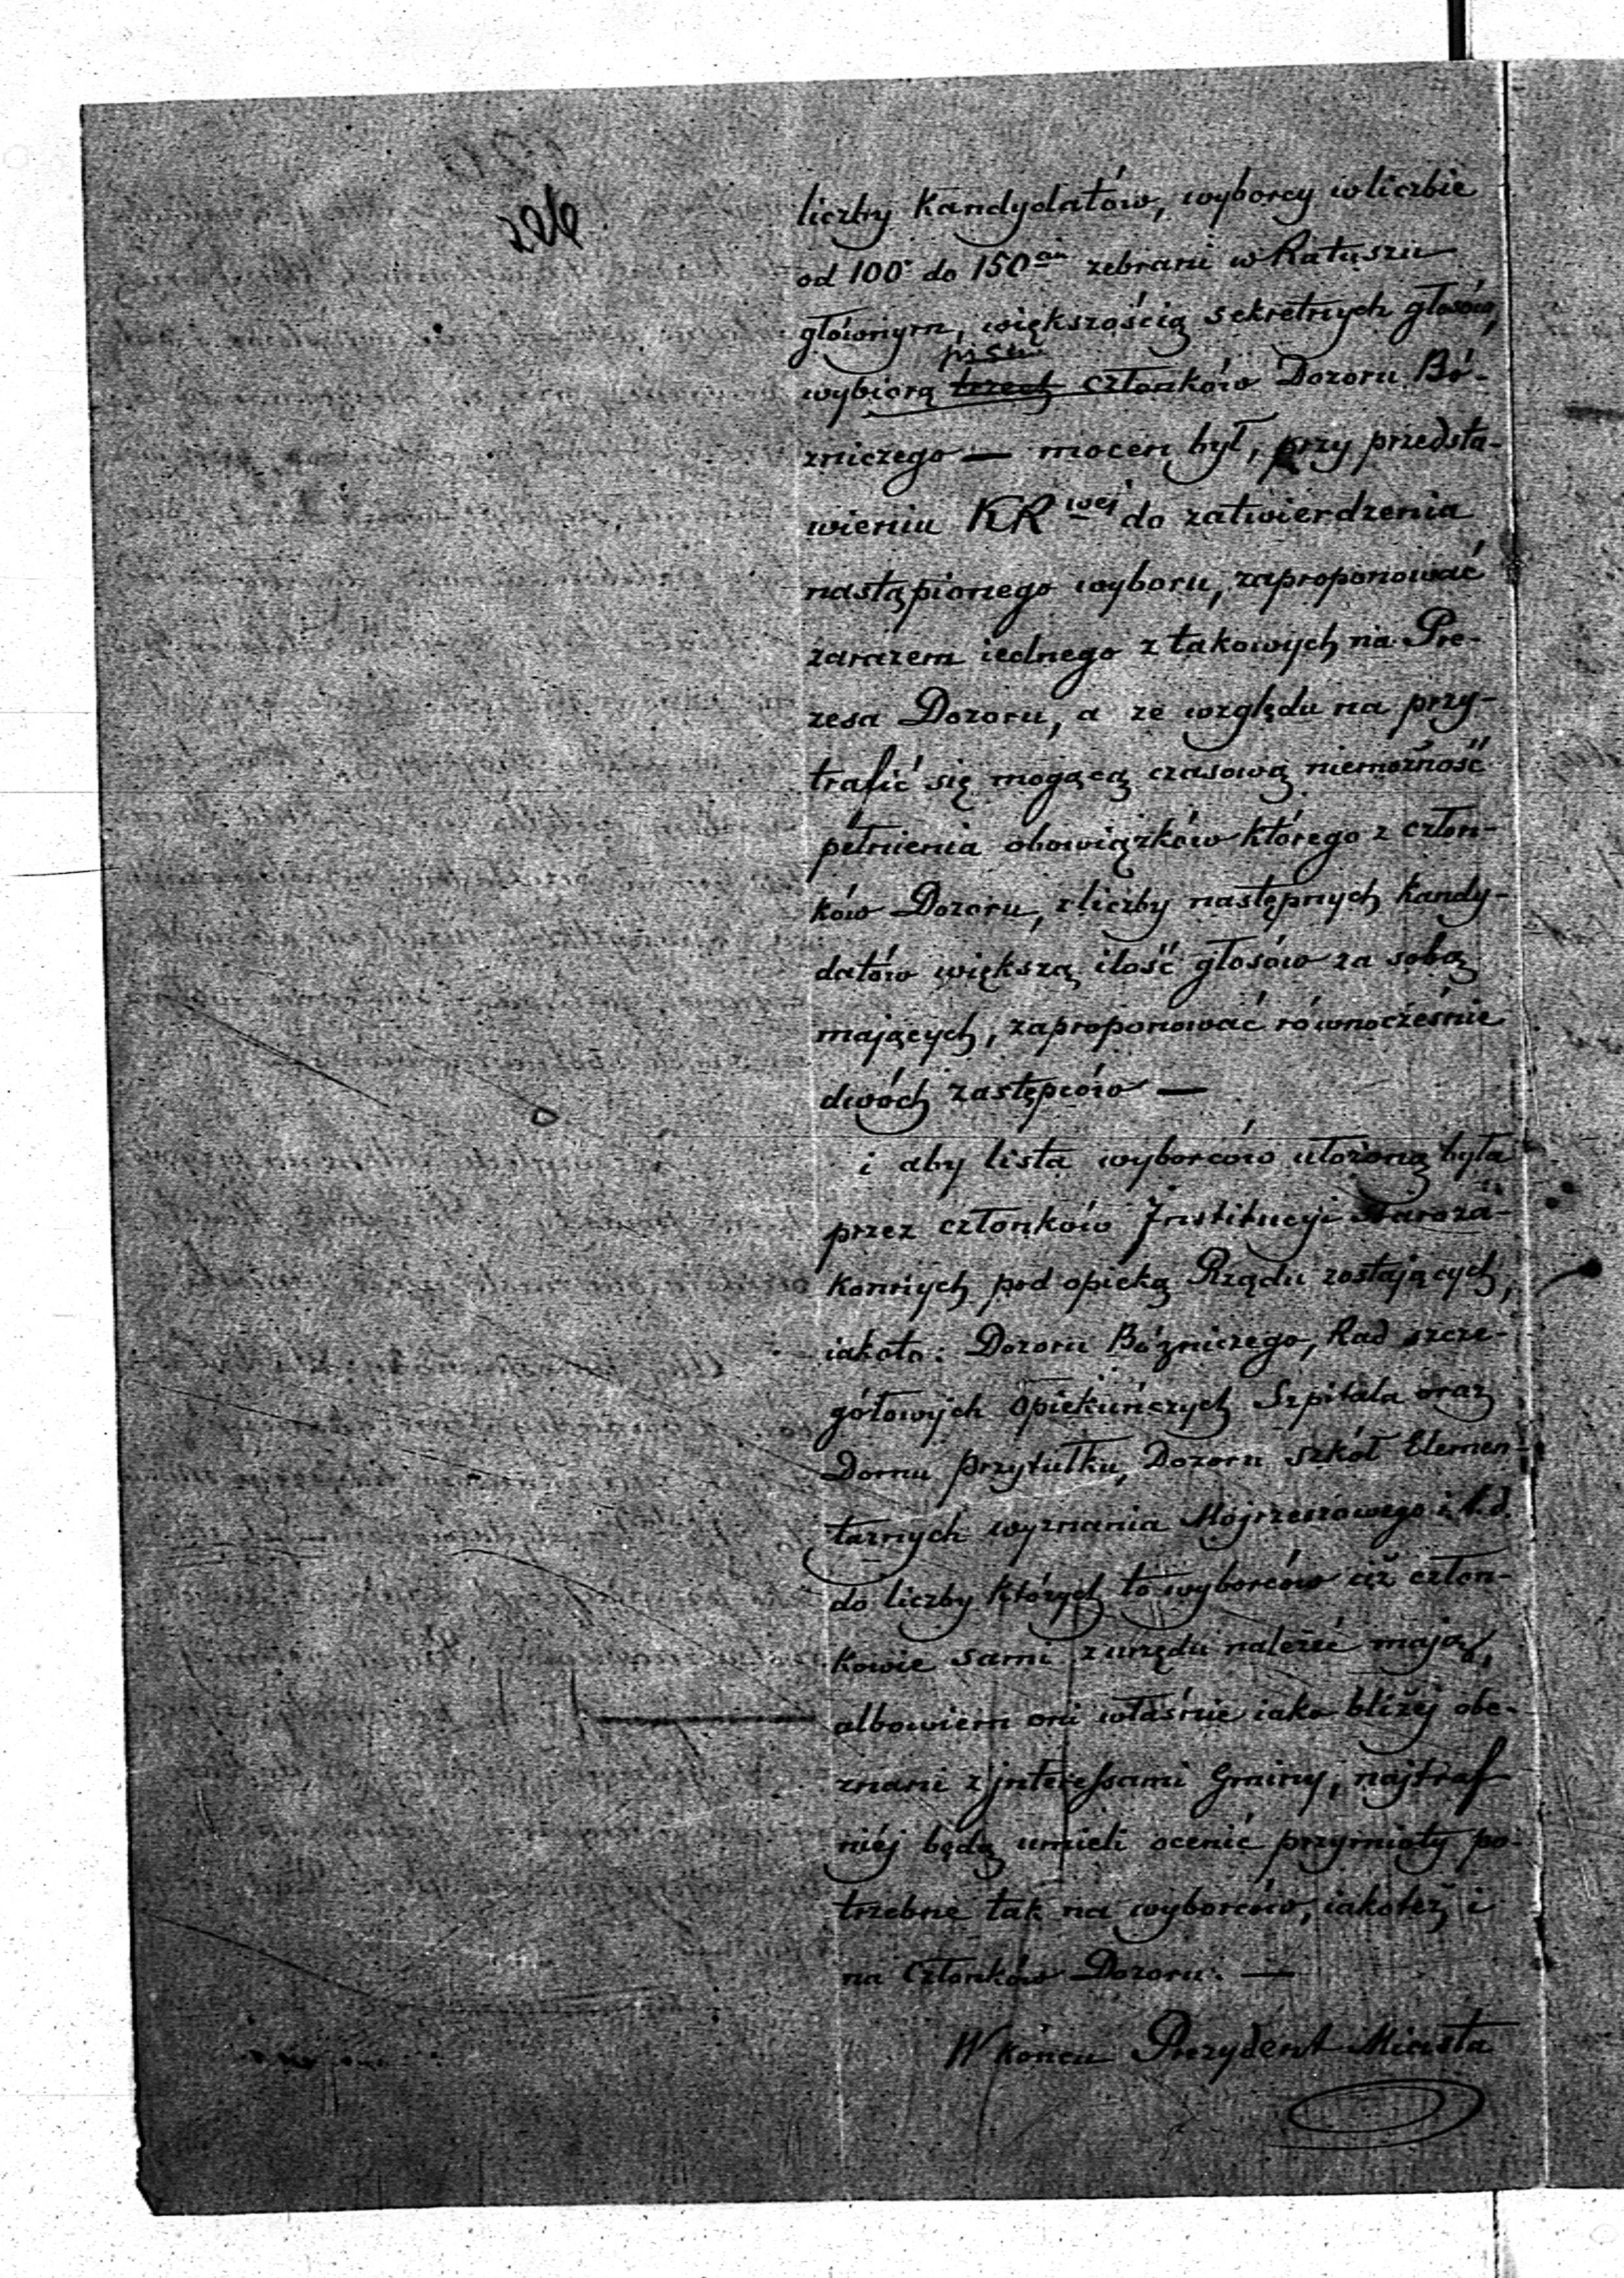 226
liczby Kandydatów, wyborcy w liczbie
od 100 do 150ciu zebrani w Ratuszu
głównym, większością sekretnych głosów,
wybiorą trzech członków Dozoru Bó-
zniczego — mocen był, przy przedsta-
wieniu KRwej do zatwierdzenia
nastąpionego wyboru, zaproponować
zarazem iednego z takowych na Pre-
zesa Dozoru, a ze względu na przy-
trafić się mogącą czasową niemożność
pełnienia obowiązków którego z człon-
ków Dozoru, z liczby następnych kandy-
datów większą ilość głosów za sobą
mających, zaproponować równocześnie
dwóch zastępców —
i aby lista wyborców ułożoną była
przez członków Jnstitucyi Staroza-
konnych pod opieką Rządu zostających,
iakoto: Dozoru Bózniczego, Rad szcze-
gółowych Opiekuńczych Szpitala oraz
Domu przytułku, Dozoru szkół Elemen-
tarnych wyznania Mojżeszowego i t.d.
do liczby których to wyborców ciż człon-
kowie sami z urzędu należeć mają,
albowiem oni właśnie iako bliżéj obe-
znani z jnteressami Gminy, najtraf
niéj będą umieli ocenić przymioty po-
trzebne tak na wyborców, iakoteż i
na Członków Dozoru. —
W końcu Prezydent Miasta